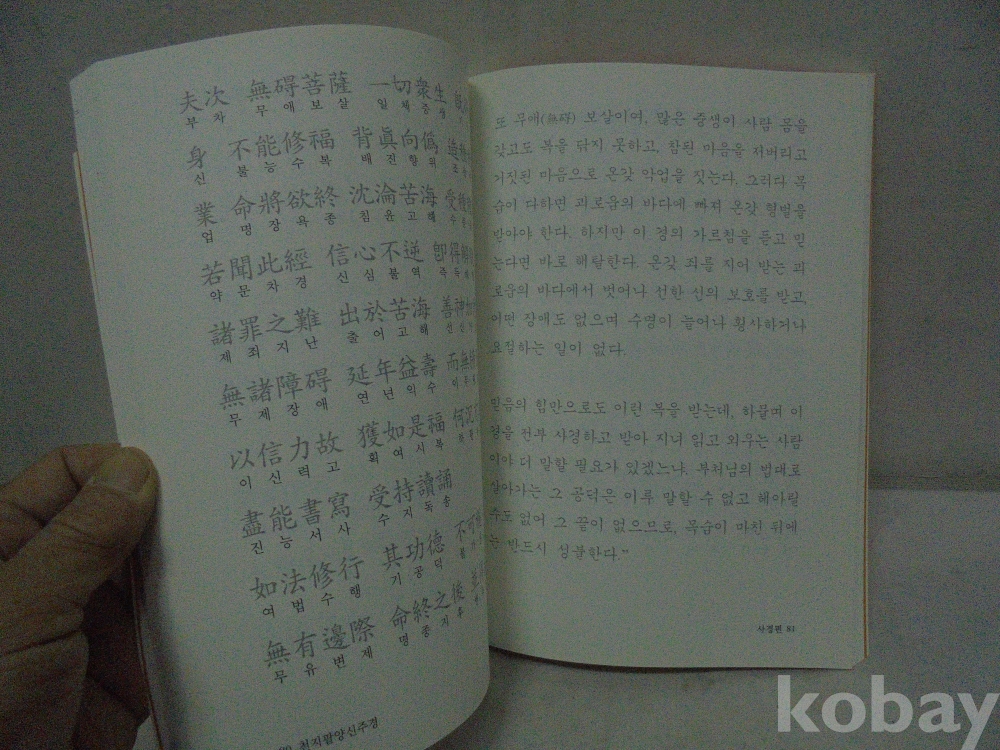 夫次 無碍菩薩 一切衆生
부차 무애보살 일체중생
身 不能修福 背眞向僞
신 불능수복 배진향위
業 命將欲終 沈淪苦海 受
업 명장욕종 침윤고해 수
若聞此經 信心不逆 卽得解
약문차경 신심불역 즉득해
諸罪之難 出於苦海 善神
제죄지난 출어고해 선신
無諸障碍 延年益壽 而無
무제장애 연년익수 이무
以信力故 獲如是福 何況
이신력고 획여시복
盡能書寫 受持讀誦
진능서사 수지독송
如法修行 其功德 不可
여법수행 기공덕 불가
無有邊際 命終之後
무유변제 명종지후
천지팔양신주경
또 무애(無碍) 보살이여, 많은 중생이 사람 몸을
갖고도 복을 닦지 못하고, 참된 마음을 저버리고
거짓된 마음으로 온갖 악업을 짓는다. 그러다 목
숨이 다하면 괴로움의 바다에 빠져 온갖 형벌을
받아야 한다. 하지만 이 경의 가르침을 듣고 믿
는다면 바로 해탈한다. 온갖 죄를 지어 받는 괴
로움의 바다에서 벗어나 선한 신의 보호를 받고,
어떤 장애도 없으며 수명이 늘어나 횡사하거나
요절하는 일이 없다.
믿음의 힘만으로도 이런 복을 받는데, 하물며 이
경을 전부 사경하고 받아 지녀 읽고 외우는 사람
이야 더 말할 필요가 있겠느냐. 부처님의 법대로
살아가는 그 공덕은 이루 말할 수 없고 헤아릴
수도 없어 그 끝이 없으므로, 목숨이 마친 뒤에
는 반드시 성불한다."
사경편 81
kobay